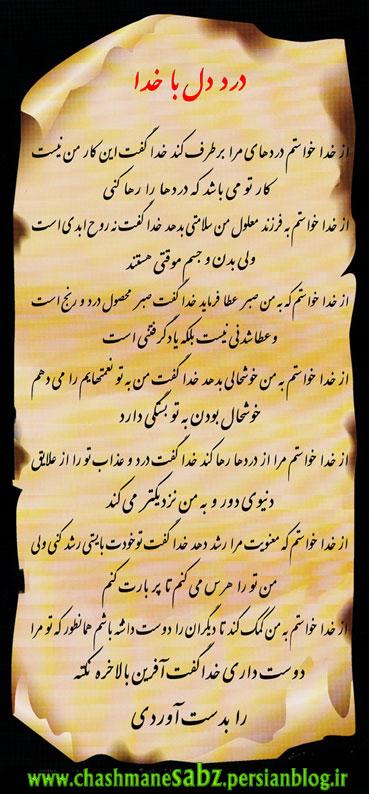 درد دل با خدا
از خدا خواستم دردهای مرا برطرف کند خدا گفت این کار من نیست
کار تو می باشد که دردها را رها کنی
از خدا خواستم به فرزند معلول من سلامتی بدهد خدا گفت نه روح ابدی است
ولی بدن و جسم موقتی هستند
از خدا خواستم که به من صبر عطا فرماید خدا گفت صبر محصول درد و رنج است
و عطا شدنی نیست بلکه یادگرفتنی است
از خدا خواستم به من خوشحالی بدهد خدا گفت من به تو نعمتهایم را می دهم
خوشحال بودن به تو بستگی دارد
از خدا خواستم مرا از دردها رها کند خدا گفت درد و عذاب تو را از علایق
دنیوی دور و به من نزدیکتر می کند
از خدا خواستم که معنویت مرا رشد دهد خدا گفت تو خودت بایستی رشد کنی ولی
من تو را هرس می کنم تا پر بارت کنم
از خدا خواستم به من کمک کند تا دیگران را دوست داشته باشم همانطور که تو مرا
دوست داری خدا گفت آفرین بالاخره نکته
را بدست آوردی
www.chashmanesabz.persianblog.ir